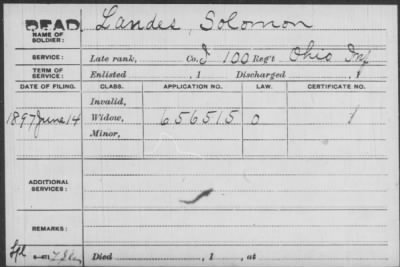 DEAD. Landes, Solomon
NAME OF SOLDIER:
SERVICE: Late rank, Co. I 100 Reg't Ohio Inf
TERM OF SERVICE: Enlisted , 1 Discharged , 1
DATE OF FILING. CLASS. APPLICATION NO. LAW. CERTIFICATE NO.
Invalid,
1897 June 14 Widow, 656515 0
Minor,
ADDITIONAL SERVICES:
REMARKS:
Died , 1 , at